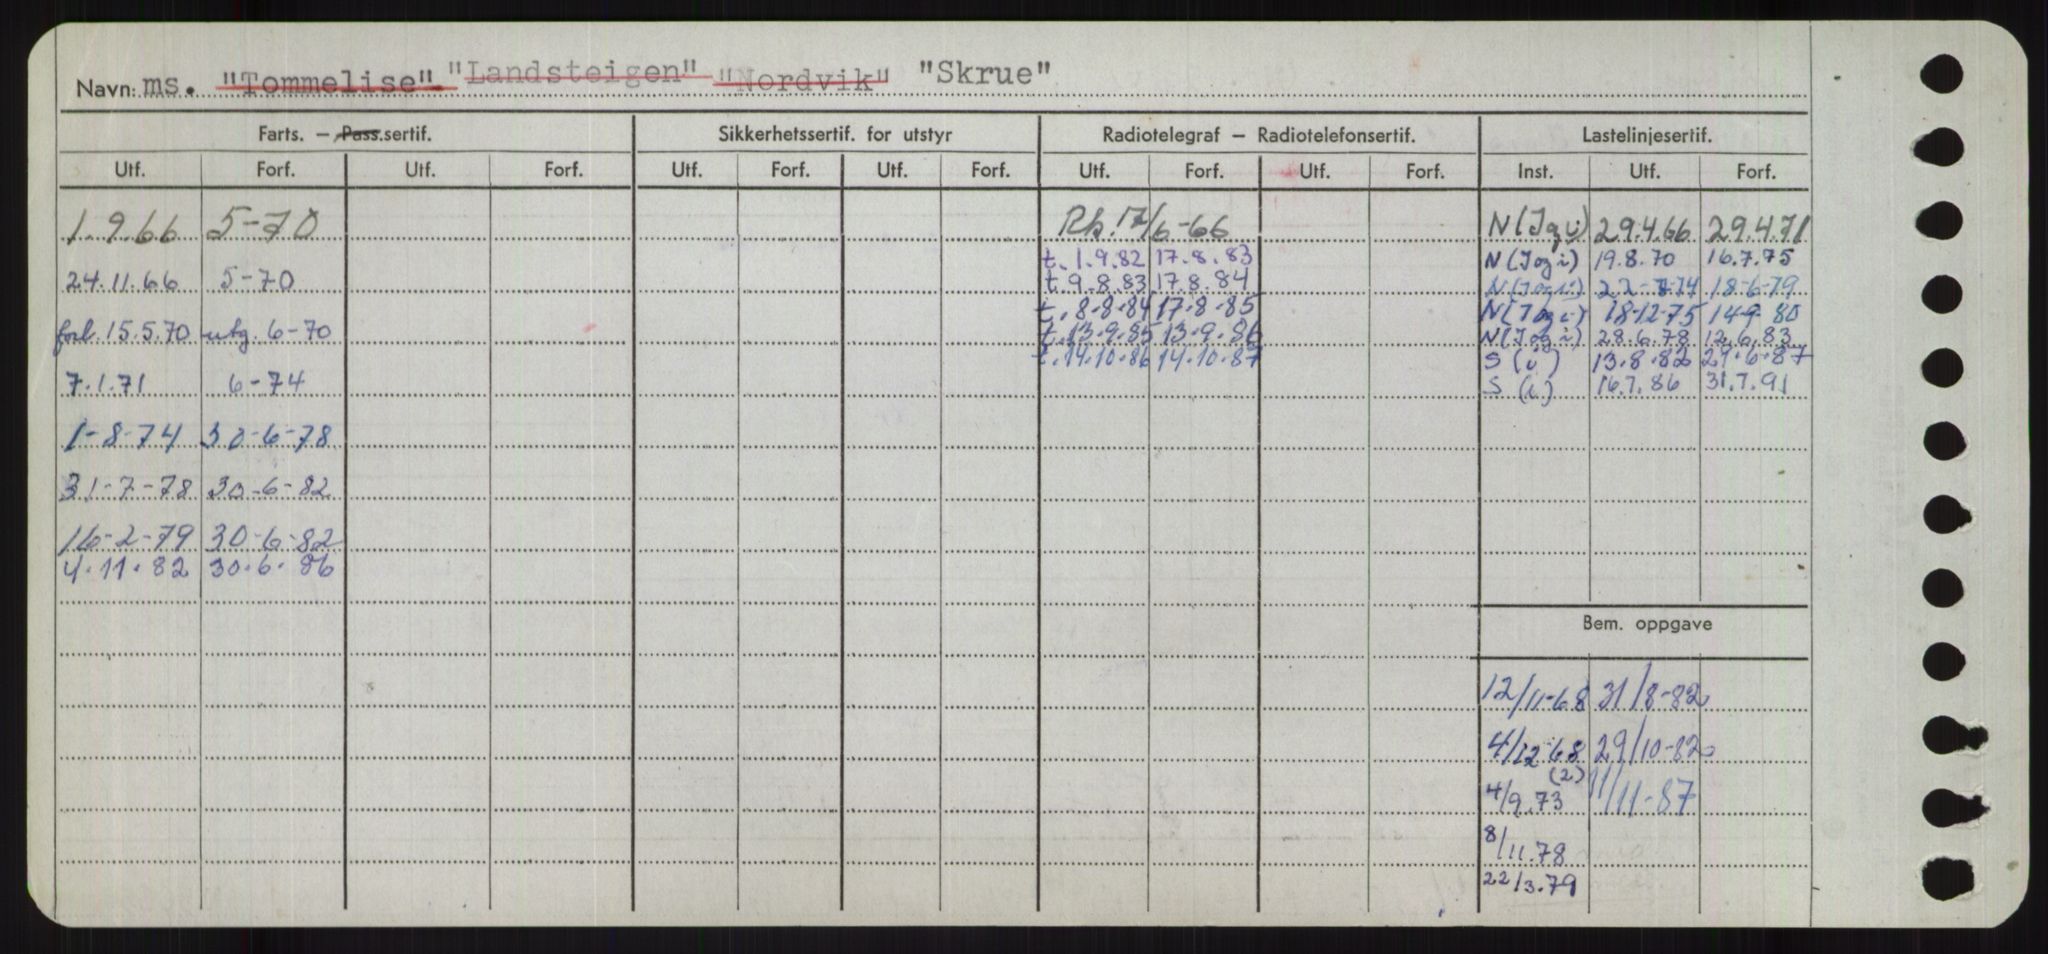 Navn: ms. "Tommelise" "Landsteigen" "Nordvik" "Skrue"
Farts. – Pass.sertif. Sikkerhetssertif. for utstyr Radiotelegraf – Radiotelefonsertif. Lastelinjesertif.
Utf. Forf. Utf. Forf. Utf. Forf. Utf. Forf. Utf. Forf. Utf. Forf. Inst. Utf. Forf.
1.9.66 5-70 Rk. 17/6-66 N (I og i) 29.4.66 29.4.71
t. 1.9.82 17.8.83 N (I og i) 19.8.70 16.7.75
24.11.66 5-70 t. 9-8.83 17.8.84 N (I og i) 18-6-79
t. 8-8-84 17-8-85 N (I og i) 18-12-75 14-9-80
forl. 15.5.70 utg. 6-70 t. 13.9.85 13.9.86 N (I og i) 28.6.78 12.6.83
t. 14.10.86 14.10.87 S (i) 13.8.82 29.6.87
7.1.71 6-74 S (i) 16.7.86 31.7.91
1-8-74 30-6-78
31-7-78 30-6-82
16-2-79 30-6-82
4.11.82 30.6.86
Bem. oppgave
12/11-68 31/8-82
4/12-68 29/10-82
(2)
4/9.73 11/11-87
8/11.78
22/3.79